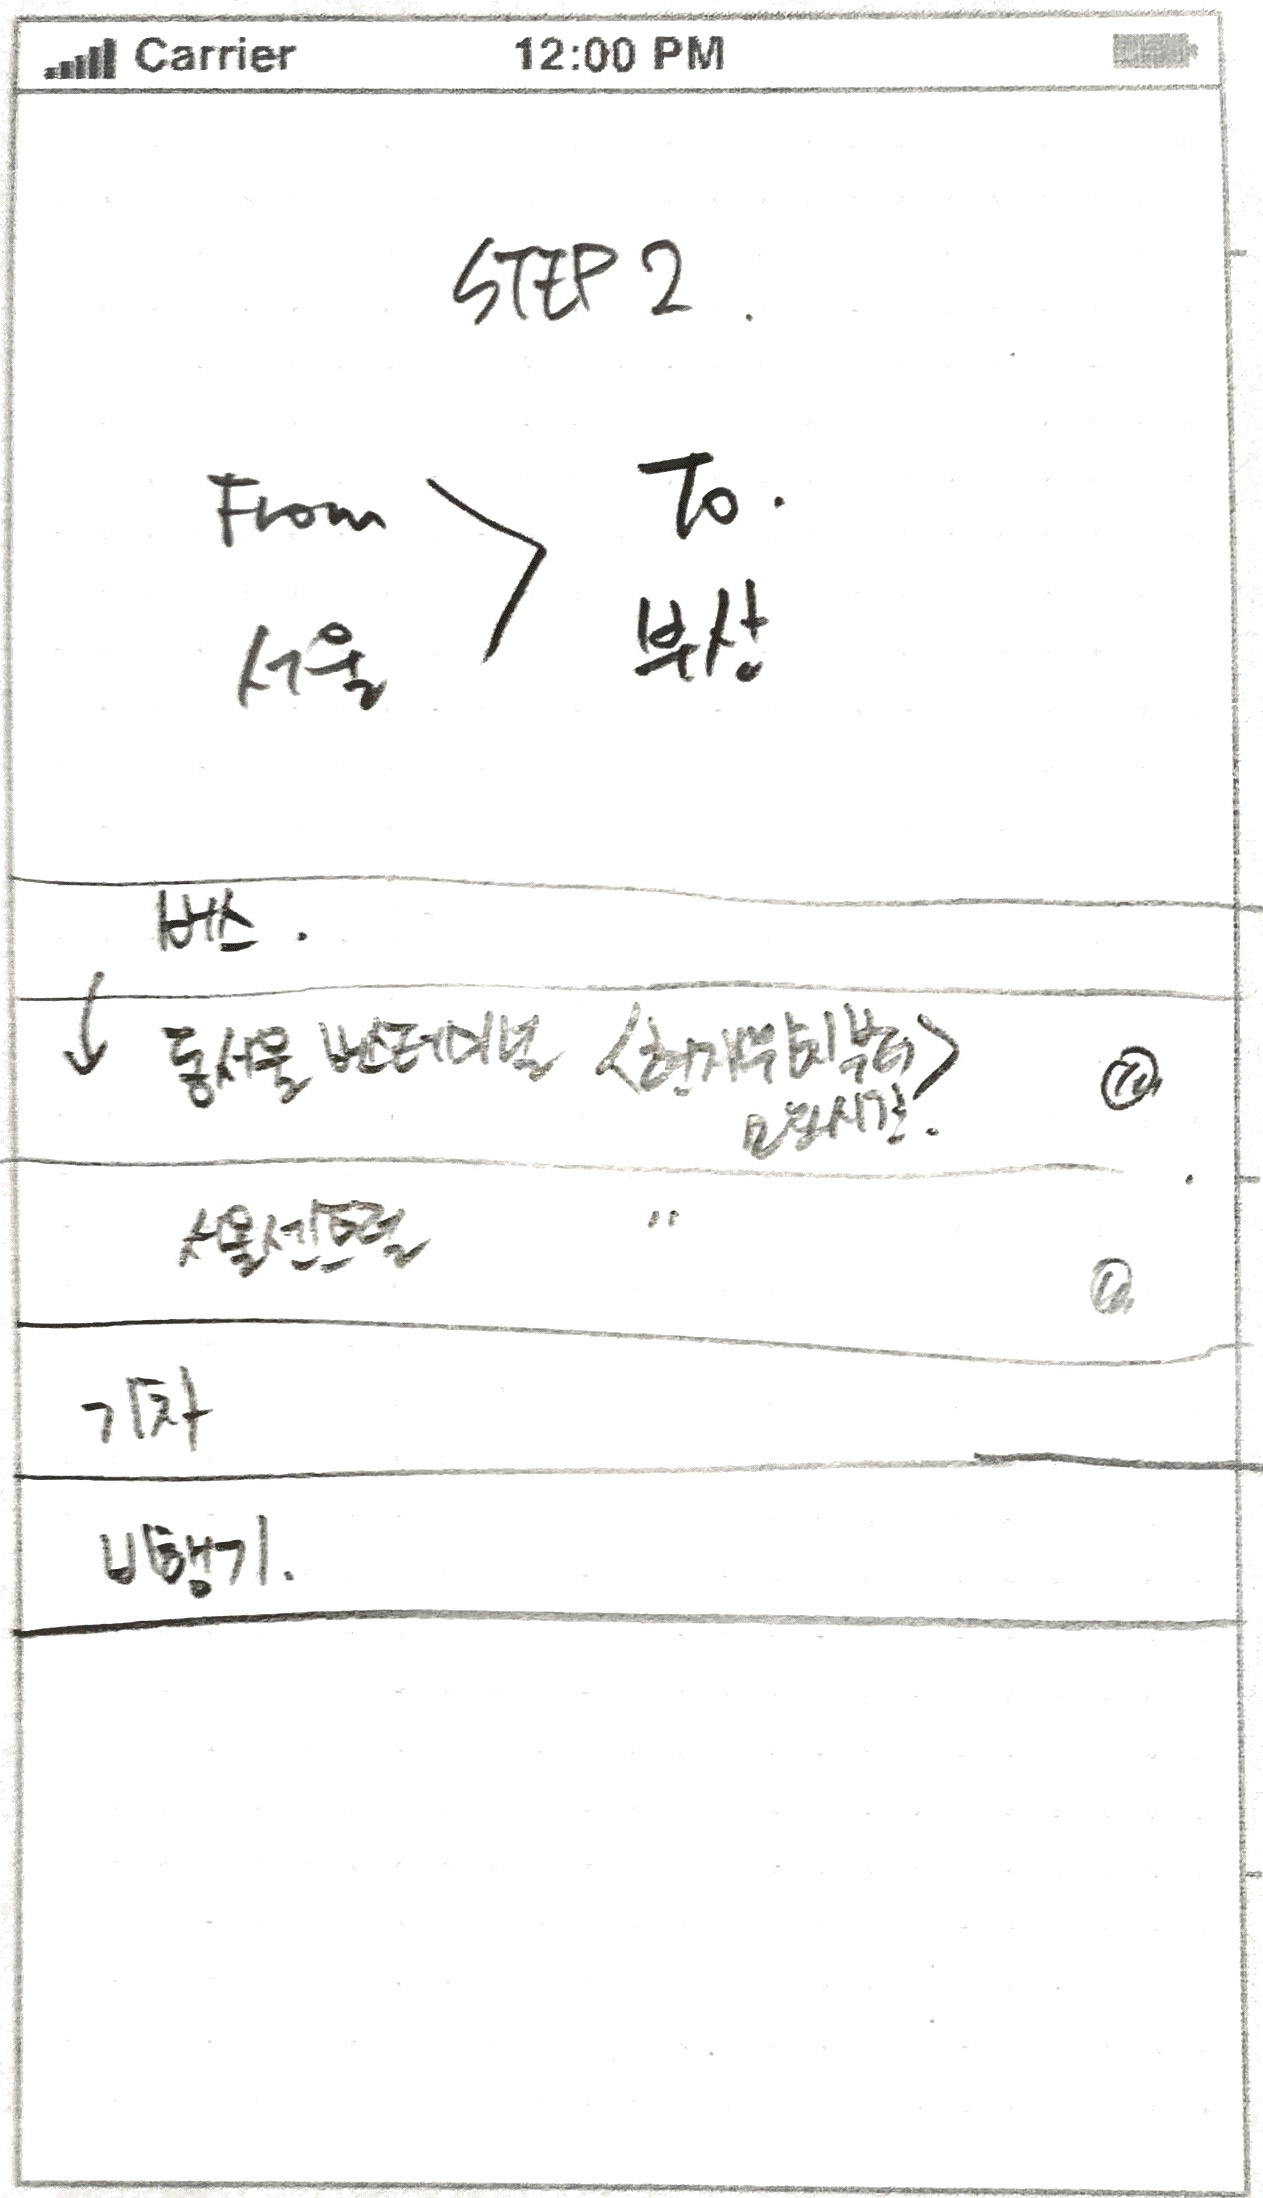 Carrier 12:00 PM
STEP 2.
From > To.
서울 부산
버스.
동서울 버스터미널 <현재위치부터>
시간.
서울센트럴 "
기차
비행기.